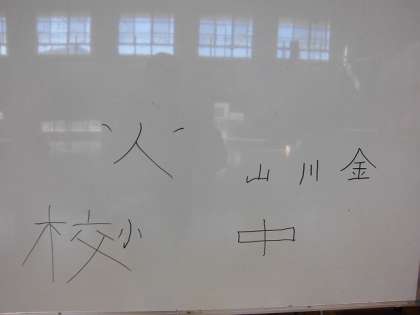 火
山 川 金
校 小 中